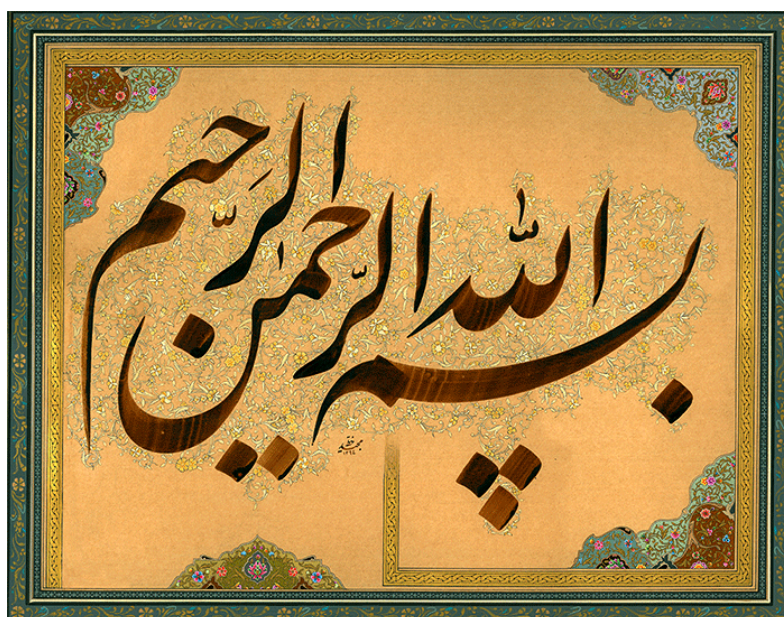 بسم الله الرَّحمٰن الرَّحیم